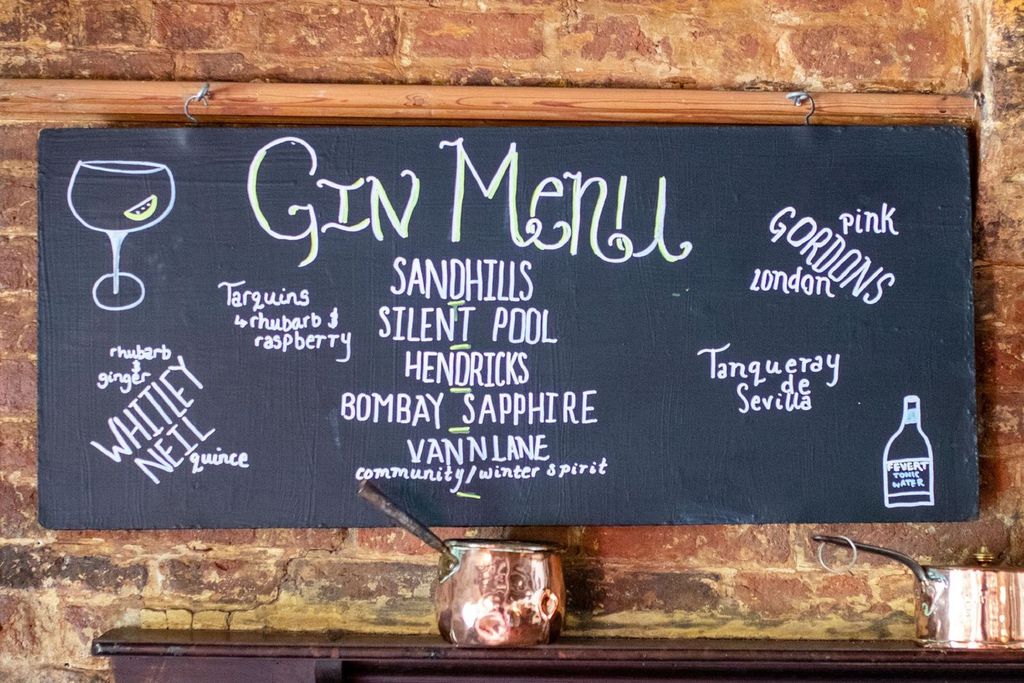 GIN MENU
SANDHILLS
SILENT POOL
HENDRICKS
BOMBAY SAPPHIRE
VANN LANE
community/winter spirit
Tarquins
↳ rhubarb &
raspberry
rhubarb
&
ginger
WHITLEY
NEIL
quince
pink
GORDONS
london
Tanqueray
de
Sevilla
FEVERT
TONIC
WATER